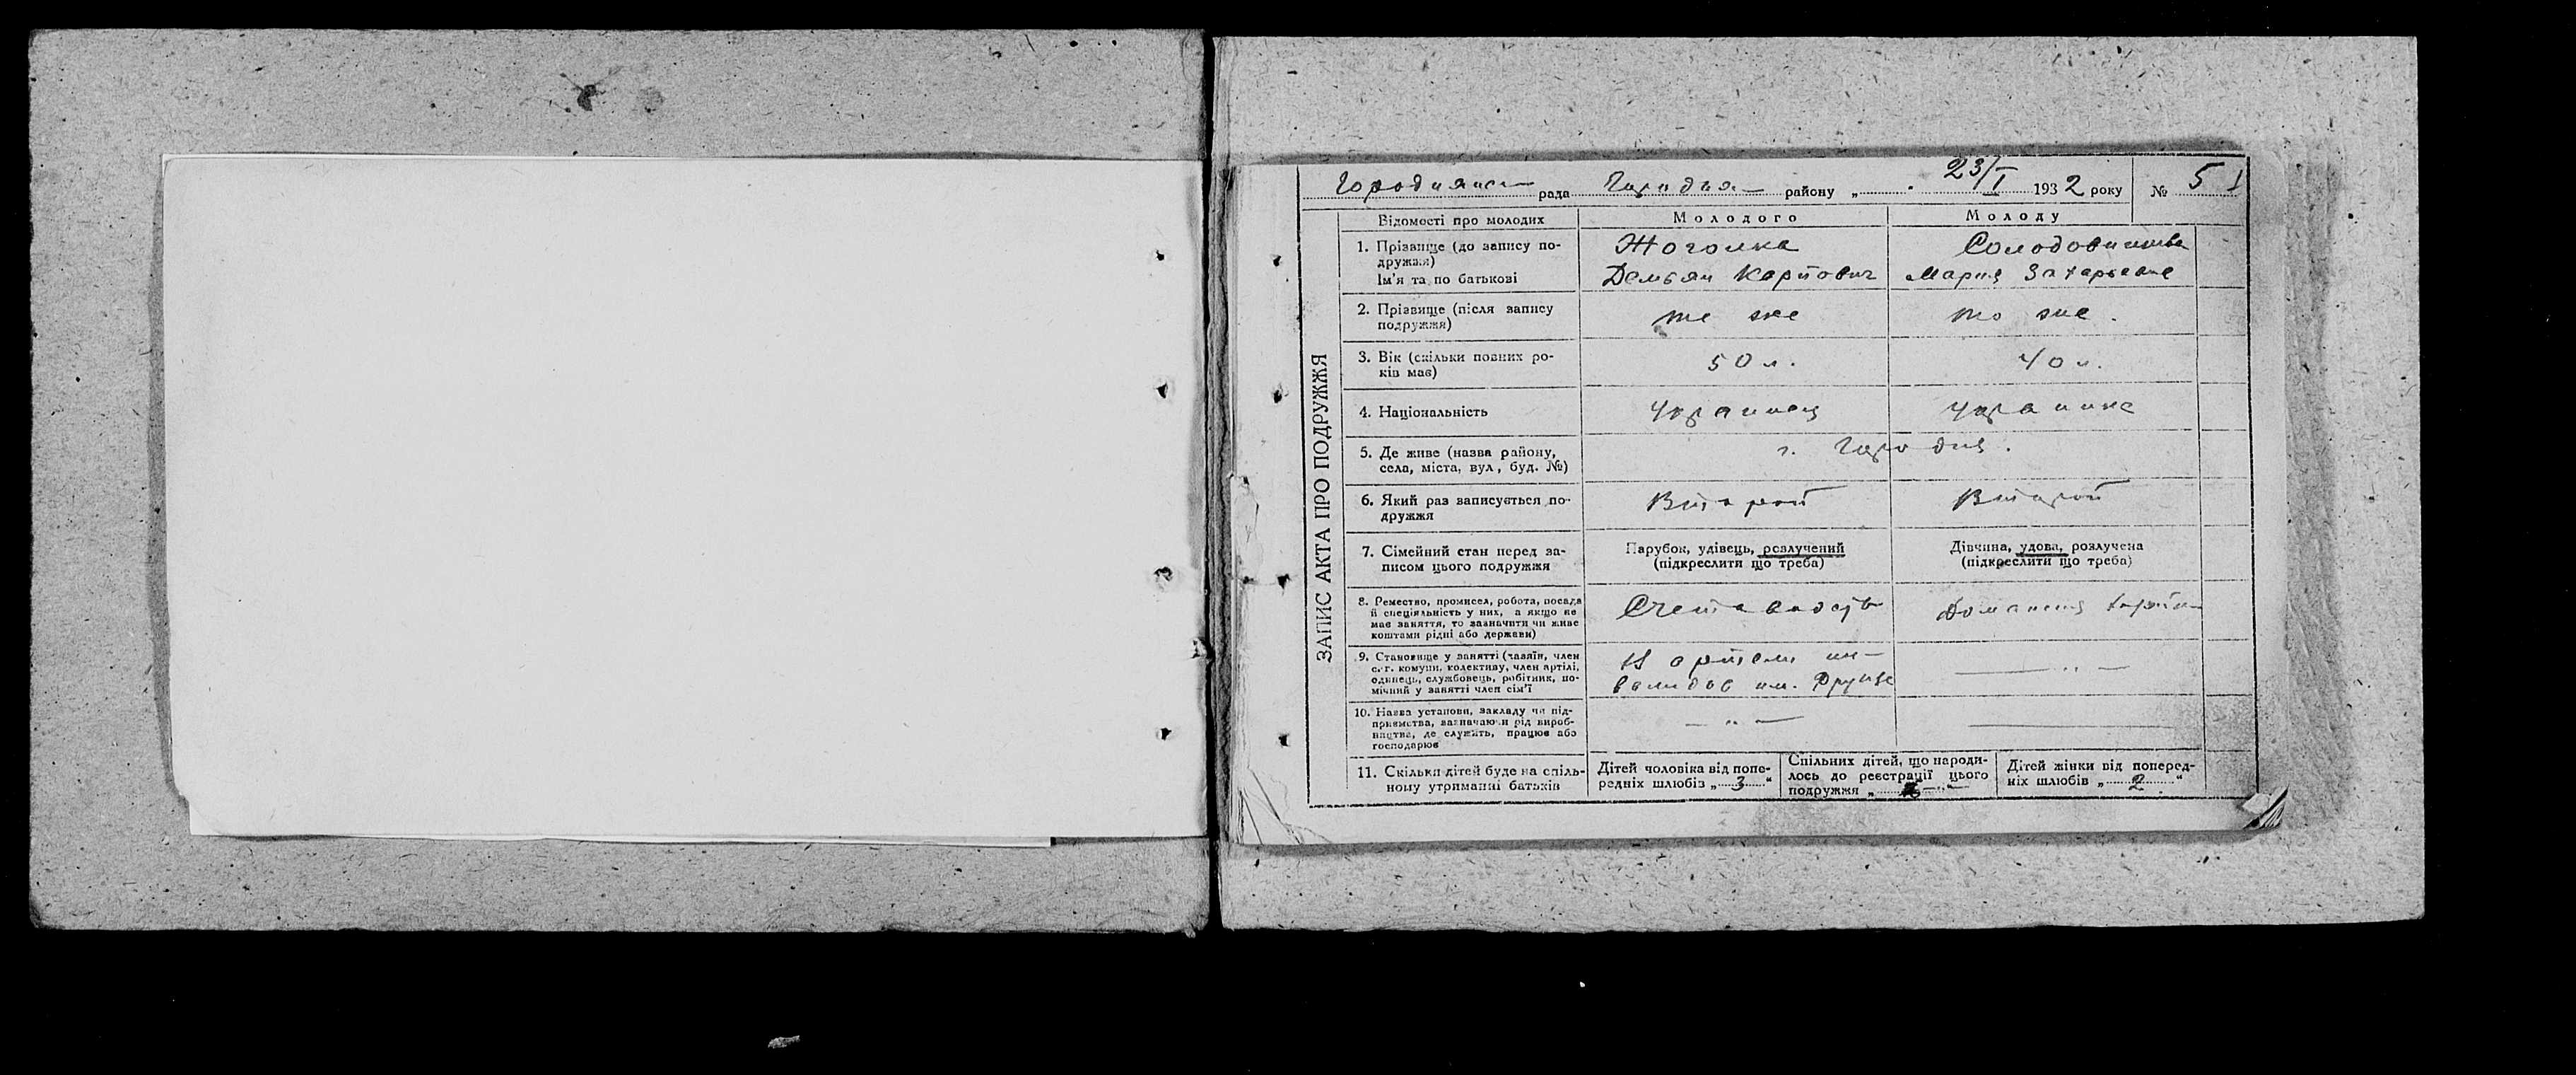 Городнянск рада Городня району „ 23/I 1932 року № 5
ЗАПИС АКТА ПРО ПОДРУЖЖЯ
Відомості про молодих Молодого Молоду
1. Прізвище (до запису подружжя) Жоголка Солодовникова
Ім'я та по батькові Демьян Карпович Мария Захарьевна
2. Прізвище (після запису подружжя) то же то же.
3. Вік (скільки повних років має) 50 л. 40 л.
4. Національність Украинец Украинка
5. Де живе (назва району, села, міста, вул, буд. №) г. Городня.
6. Який раз записується подружжя Второй Второй
7. Сімейний стан перед записом цього подружжя Парубок, удівець, розлучений (підкреслити що треба) Дівчина, удова, розлучена (підкреслити що треба)
8. Ремество, промисел, робота, посада й спеціяльність у них, а якщо не має заняття, то зазначити чи живе коштами рідні або держави) Счетовод Домашняя
9. Становище у занятті (хазяїн, член с.-г. комуни, колективу, член артілі, одинець, службовець, робітник, помічний у занятті член сім'ї В артели инвалидов им. Фрунзе — " —
10. Назва установи, закладу чи підприємства, зазначаючи рід виробництва, де служить, працює або господарює — " — —
11. Скільки дітей буде на спільному утриманні батьків Дітей чоловіка від попередніх шлюбів „ 3 “ Спільних дітей, що народилось до реєстрації цього подружжя „ — Дітей жінки від попередніх шлюбів „ 2 “